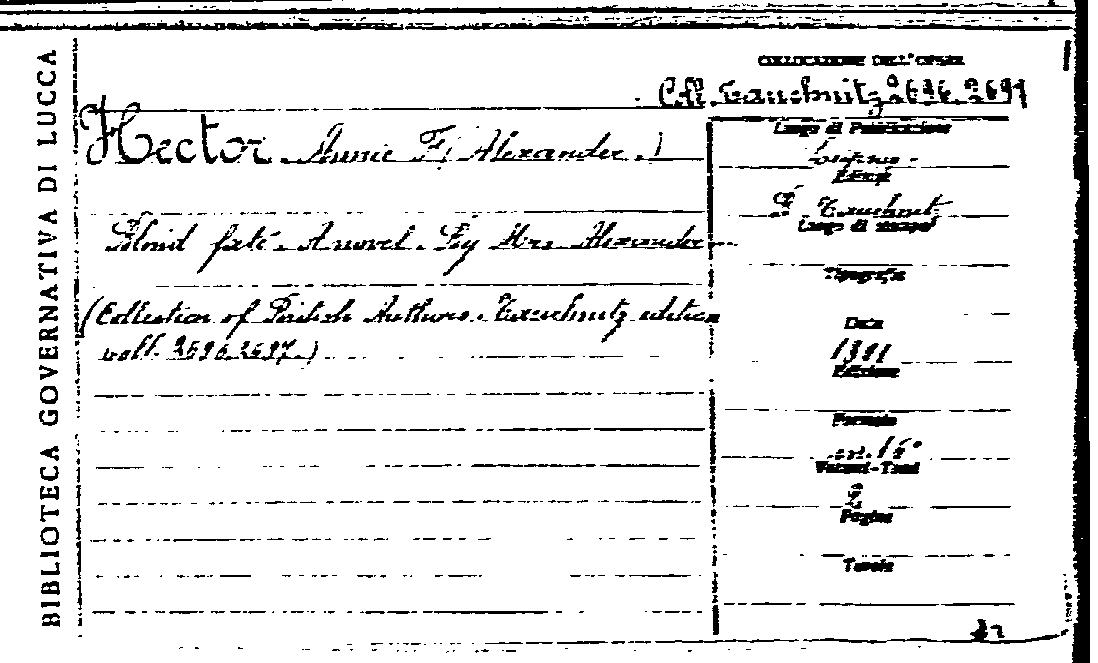 BIBLIOTECA GOVERNATIVA DI LUCCA
COLLOCAZIONE DELL'OPERA
Coll. Tauchnitz 2696.2697
Hector Annie F( Alexander.)
Blind fate. A novel. By Mrs. Alexander
(Collection of British Authors. Tauchnitz edition
voll. 2696.2697.)
Luogo di Pubblicazione
Editore
Tauchnitz
Luogo di stampa
Tipografia
Data
1891
Edizione
Formato
in. 16°
Volumi-Tomi
2
Pagine
Tavole